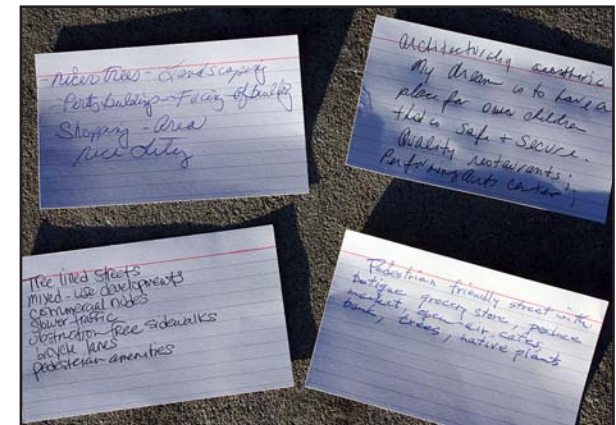 - nicer trees - Landscaping
buildings - Facing of builing
Shopping - area
nice
architecturlly aesthetic
My dream is to have a
place for our children
that is safe + secure.
Quality restaurants;
Performing arts center,
Tree lined streets
mixed-use developments
commercial nodes
slower traffic
obstruction-free sidewalks
bicycle lanes
pedesterian amenities
Pedestrian friendly street with
botique grocery store, produce
market, open-air cafes,
bank, trees, native plants